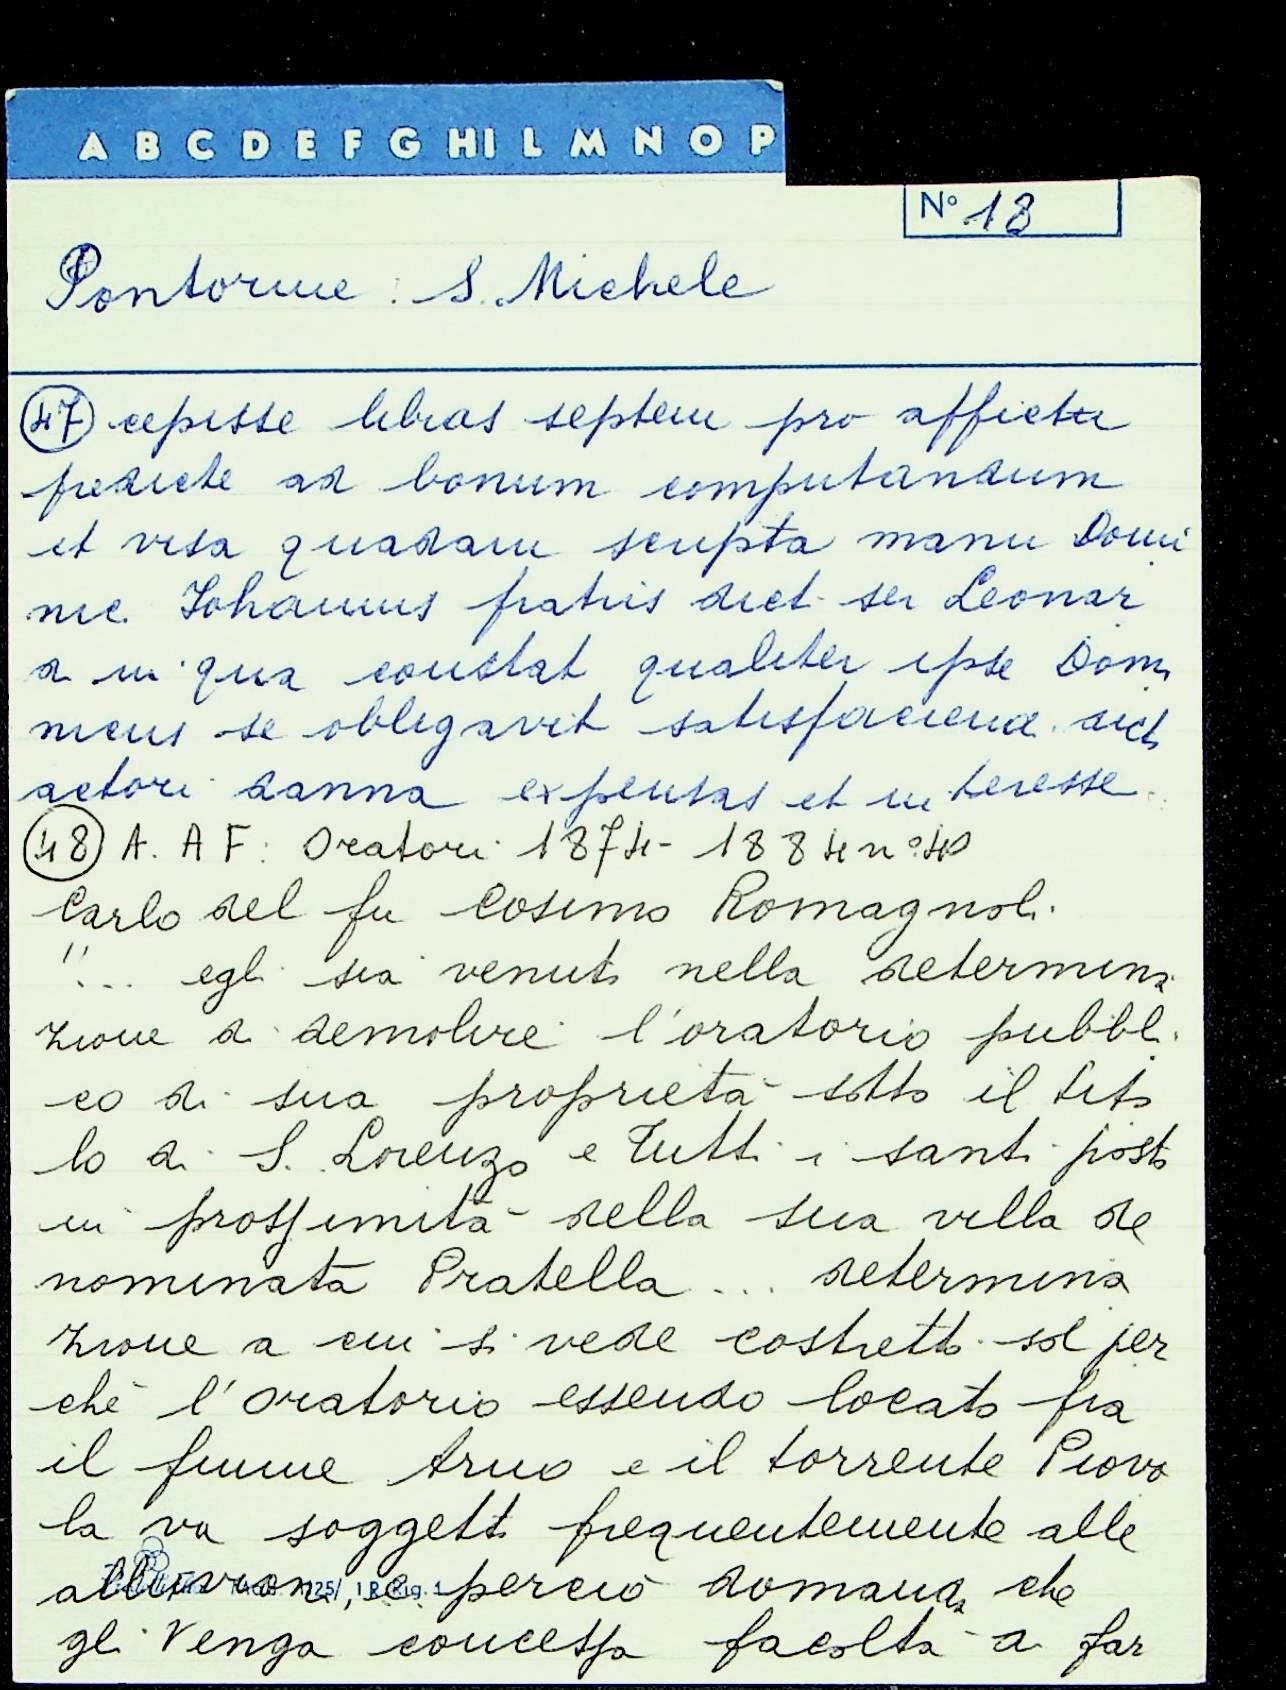 A B C D E F G HI L M N O P
N° 18
Pontorme : S. Michele
47 cepisse libras septem pro affictu
predicte ad bonum computandum
et visa quadam scripta manu Domi
nic. Johannis fratris dict. ser Leonar
di in qua constat qualiter ipse Domi
nicus se obligavit satisfaciend. dict.
actori danna expensas et interesse.
48 A. A F: Oratori 1874-1884 n° 40
Carlo del fu Cosimo Romagnoli.
"... egli sia venuto nella determina
zione di demolire l'oratorio pubbli
co di sua proprietà sotto il tito
lo di S. Lorenzo e Tutti i santi posto
in prossimità della sua villa de
nominata Pratella ... determina
zione a cui si vede costretto sol per
chè l'oratorio essendo locato fra
il fiume Arno e il torrente Piovo
la va soggetto frequentemente alle
alluvioni, e perciò domanda che
gli venga concessa facoltà a far